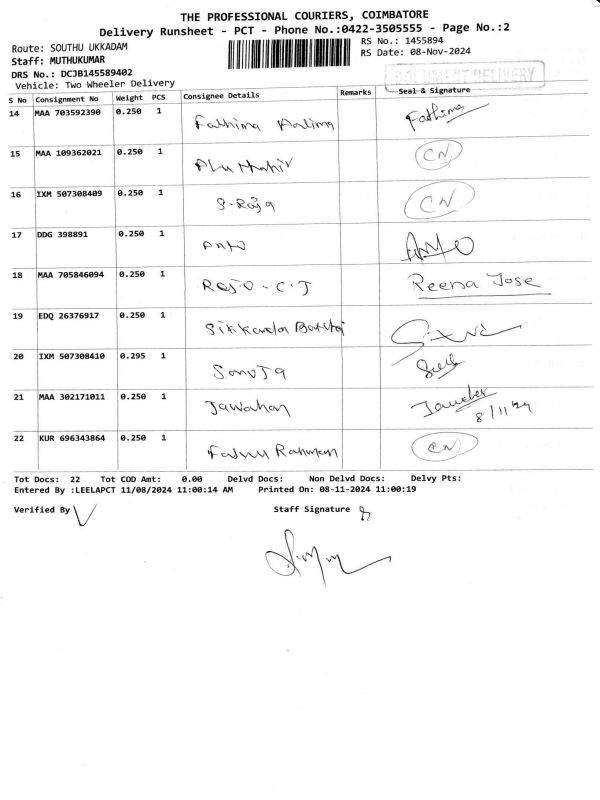 THE PROFESSIONAL COURIERS, COIMBATORE
Delivery Runsheet - PCT - Phone No.:0422-3505555 - Page No.:2
Route: SOUTHU UKKADAM
RS No.: 1455894
Staff: MUTHUKUMAR
RS Date: 08-Nov-2024
DRS No.: DCJB145589402
DOCUMENT DELIVERY
Vehicle: Two Wheeler Delivery
S No Consignment No Weight PCS Consignee Details Remarks Seal & Signature
14 MAA 703592390 0.250 1 Fathima Fathima
15 MAA 109362021 0.250 1 CN
16 IXM 507308409 0.250 1 S-Raja CN
17 DDG 398891 0.250 1 Anto Anto
18 MAA 705846094 0.250 1 Rejo-C.J Reena Jose
19 EDQ 26376917 0.250 1
20 IXM 507308410 0.295 1 Sonuja
21 MAA 302171011 0.250 1 Jawahan 8/11/24
22 KUR 696343864 0.250 1 Rahman CN
Tot Docs: 22 Tot COD Amt: 0.00 Delvd Docs: Non Delvd Docs: Delvy Pts:
Entered By :LEELAPCT 11/08/2024 11:00:14 AM Printed On: 08-11-2024 11:00:19
Verified By Staff Signature